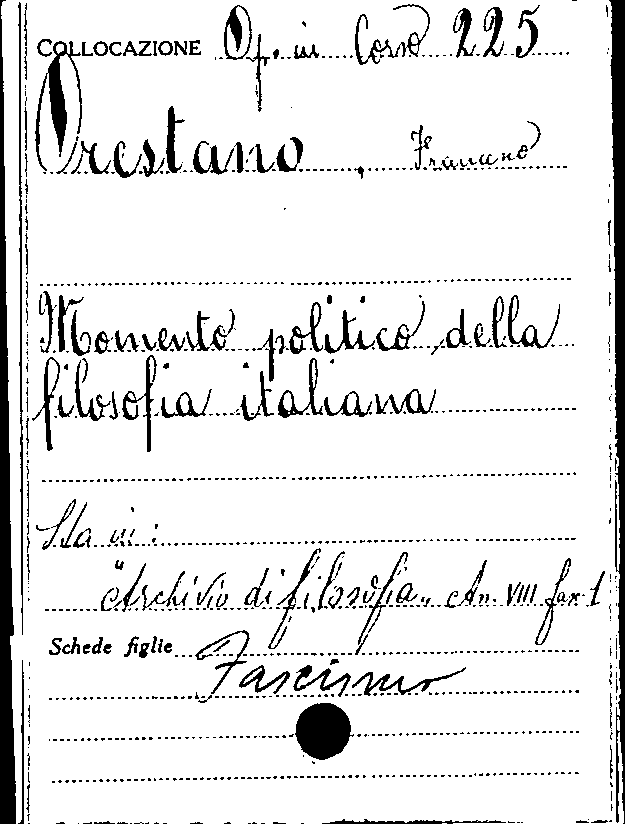 COLLOCAZIONE Op. in Corso 225
Orestano, Francesco
Momento politico della
filosofia italiana
Sta in:
"Archivio di filosofia" An. VIII fasc. 1
Schede figlie Fascismo